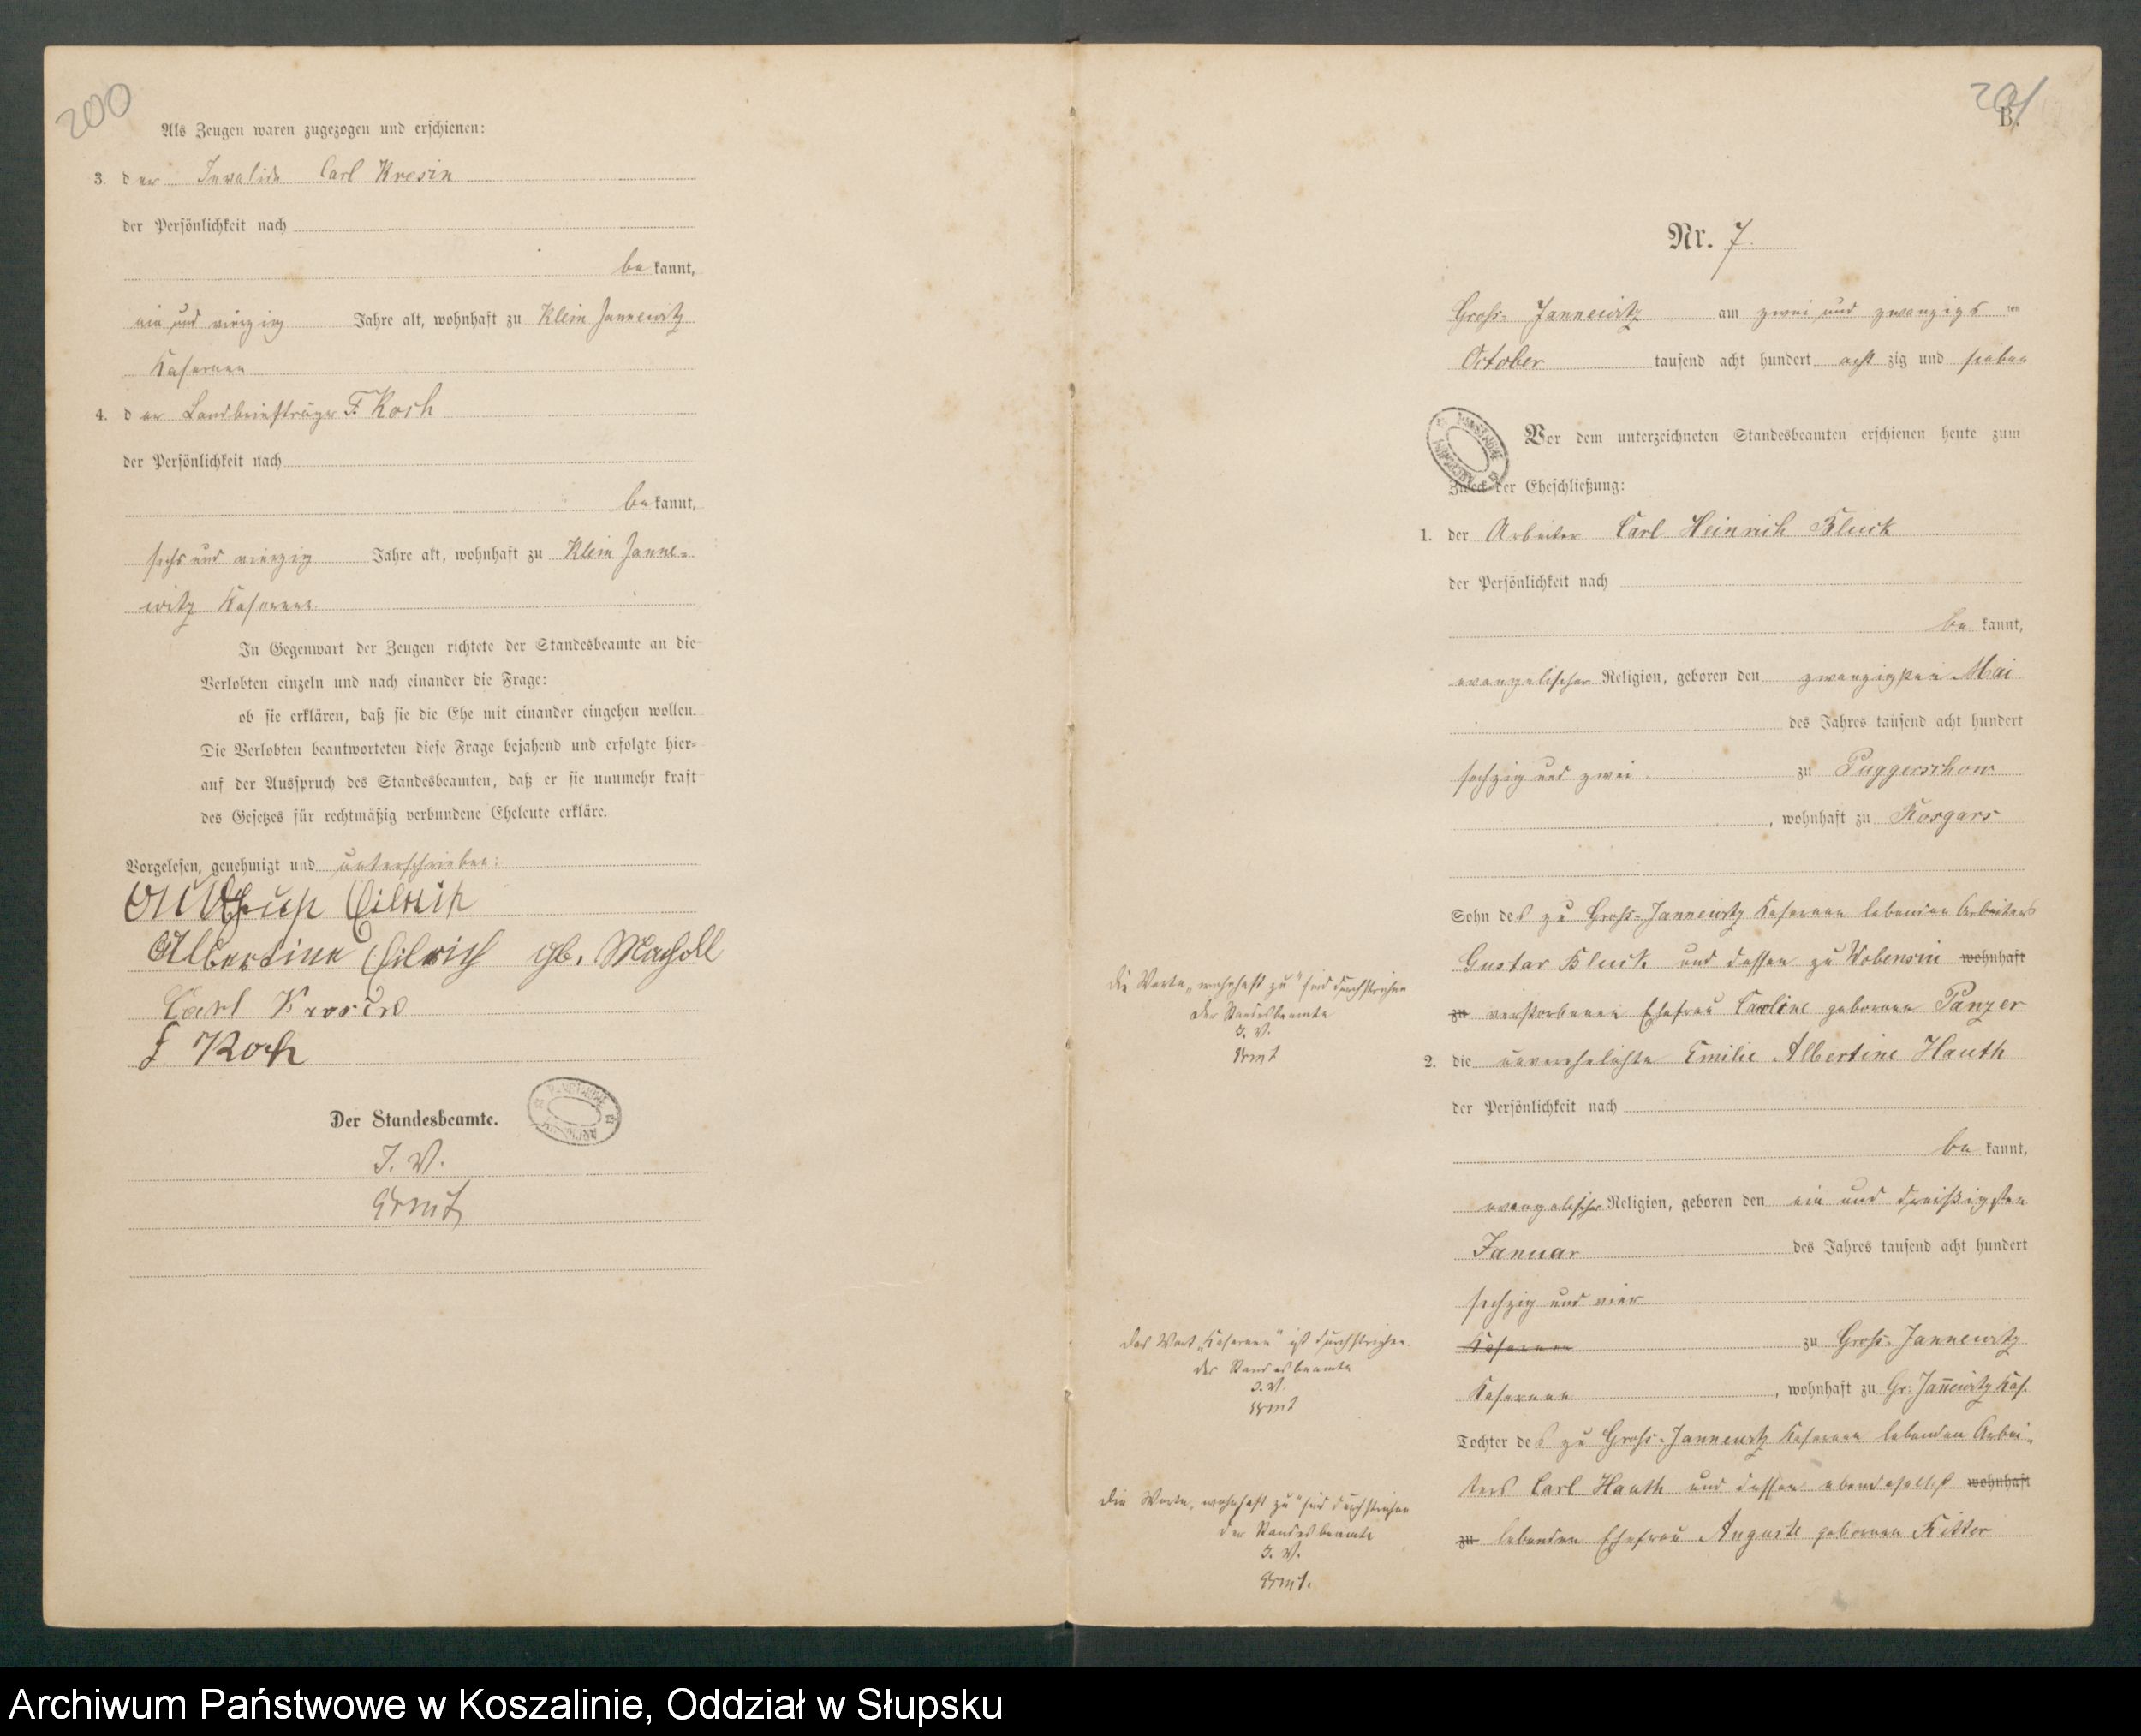 200
Als Zeugen waren zugezogen und erschienen:
3. der Invalide Carl Kresin
der Persönlichkeit nach
be kannt,
ein und vierzig Jahre alt, wohnhaft zu Klein Jannewitz
Kasernen
4. der Landbriefträger F. Koch
der Persönlichkeit nach
be kannt,
sechs und vierzig Jahre alt, wohnhaft zu Klein Janne-
witz Kasernen
In Gegenwart der Zeugen richtete der Standesbeamte an die
Verlobten einzeln und nach einander die Frage:
ob sie erklären, daß sie die Ehe mit einander eingehen wollen.
Die Verlobten beantworteten diese Frage bejahend und erfolgte hier-
auf der Ausspruch des Standesbeamten, daß er sie nunmehr kraft
des Gesetzes für rechtmäßig verbundene Eheleute erkläre.
Vorgelesen, genehmigt und unterschrieben:
Albertine gb.
Carl Kresin
F Koch
Der Standesbeamte.
J. V.
201
B.
Nr. 7.
Gross-Jannewitz am zwei und zwanzigsten
October tausend acht hundert acht zig und sieben
Vor dem unterzeichneten Standesbeamten erschienen heute zum
Zweck der Eheschließung:
1. der Arbeiter Carl Heinrich Bluck
der Persönlichkeit nach
be kannt,
evangelischer Religion, geboren den zwanzigsten Mai
des Jahres tausend acht hundert
sechzig und zwei zu Puggerschow
, wohnhaft zu Rosgars
Sohn des zu Gross-Jannewitz Kasernen lebenden Arbeiters
Gustav Bluck und dessen zu Wobensin wohnhaft
zu verstorbenen Ehefrau Caroline geborenen Panzer
2. die unverehelichte Emilie Albertine Hauth
der Persönlichkeit nach
be kannt,
evangelischer Religion, geboren den ein und dreißigsten
Januar des Jahres tausend acht hundert
sechzig und vier
Kasernen zu Gross-Jannewitz
Kasernen, wohnhaft zu Gr. Jannewitz Kas.
Tochter des zu Gross-Jannewitz Kasernen lebenden Arbei-
ters Carl Hauth und dessen ebendaselbst wohnhaft
zu lebenden Ehefrau Auguste geborenen Ritter
Die Worte „wohnhaft zu“ sind durchstrichen
Der Standesbeamte
J. V.
Das Wort „Kasernen“ ist durchstrichen.
Der Standesbeamte
J. V.
Die Worte „wohnhaft zu“ sind durchstrichen
Der Standesbeamte
J. V.
Archiwum Państwowe w Koszalinie, Oddział w Słupsku